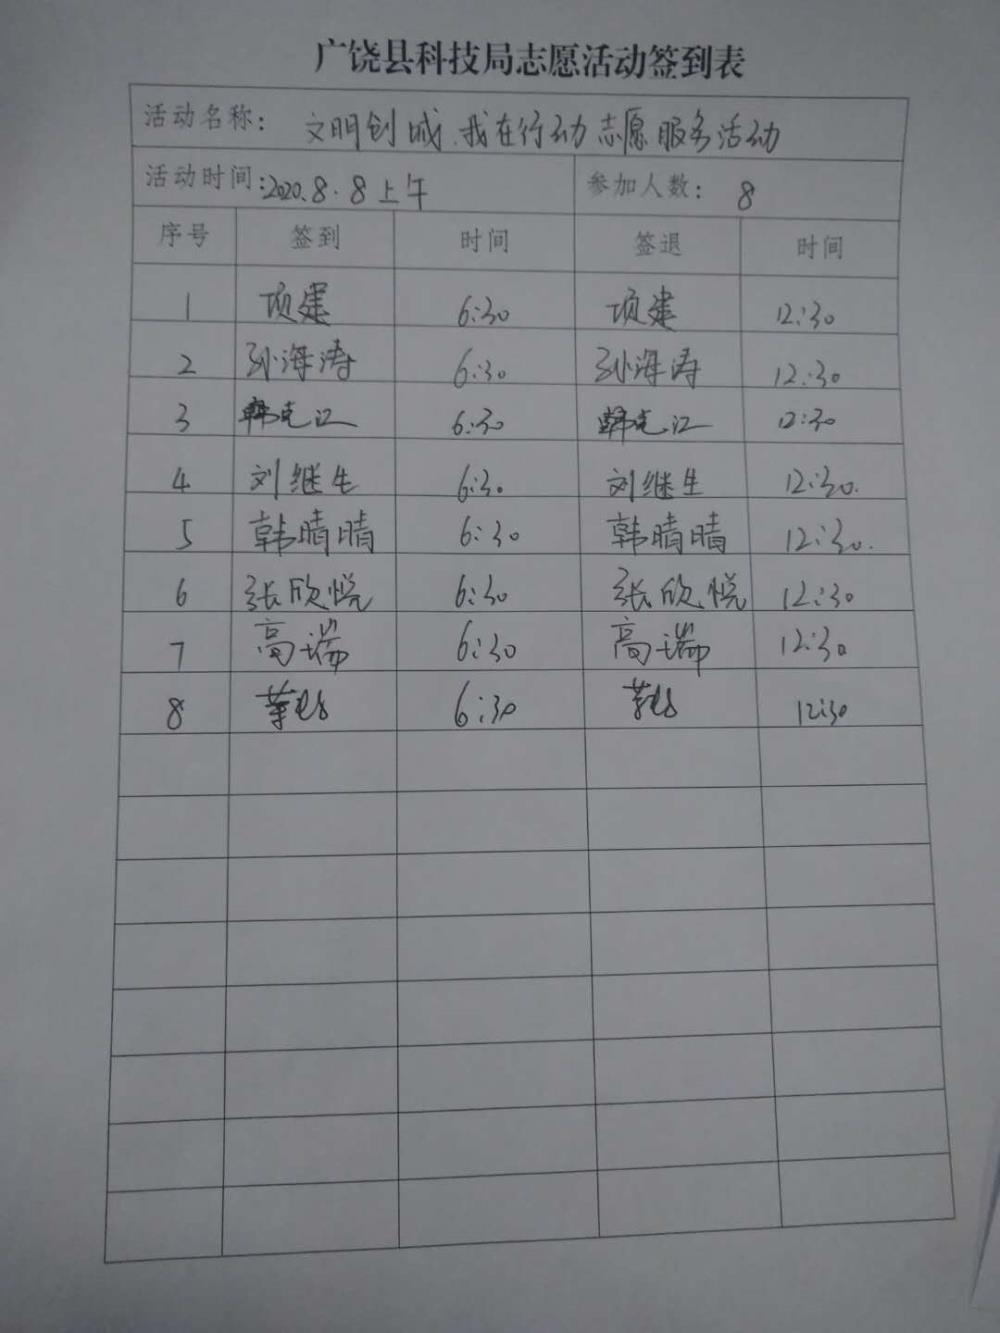 广饶县科技局志愿活动签到表
活动名称: 文明创城.我在行动志愿服务活动
活动时间:2020.8.8上午 参加人数: 8
序号 签到 时间 签退 时间
1 项建 6:30 项建 12:30
2 孙海涛 6:30 孙海涛 12:30
3 韩克江 6:30 韩克江 12:30
4 刘继生 6:30 刘继生 12:30.
5 韩晴晴 6:30 韩晴晴 12:30.
6 张欣悦 6:30 张欣悦 12:30
7 高瑞 6:30 高瑞 12:30
8 6:30 12:30